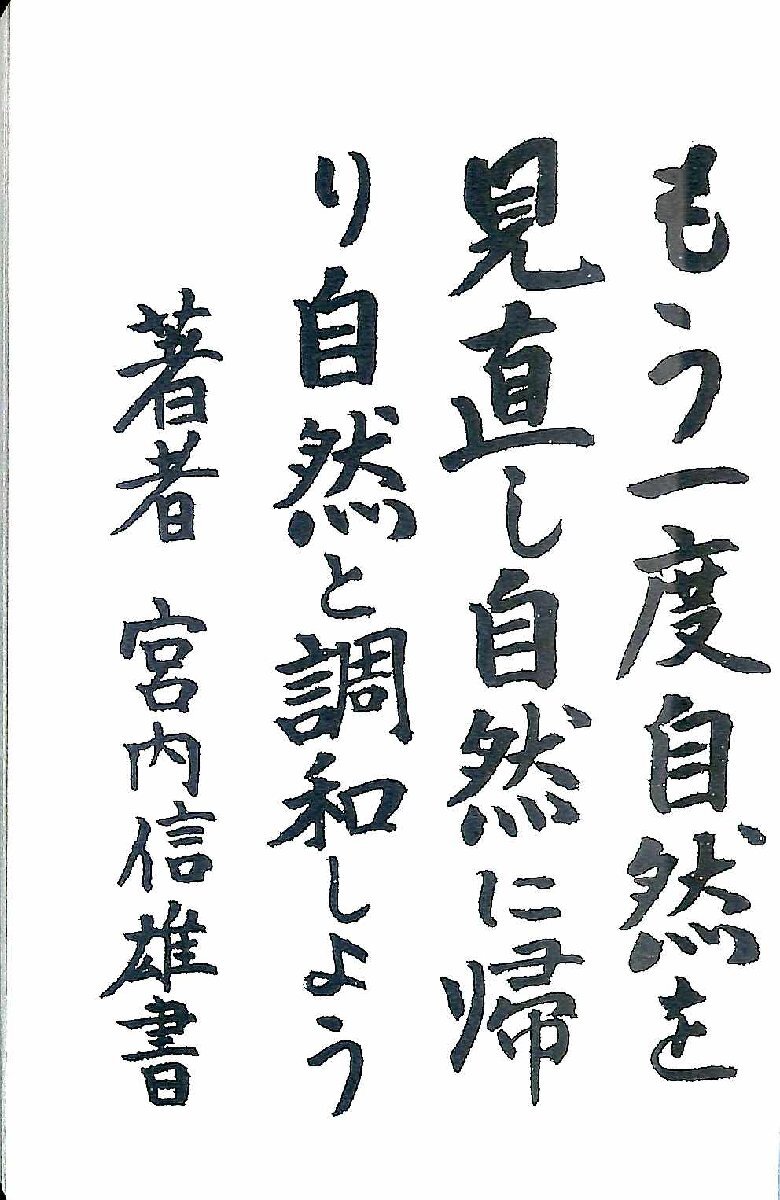 もう一度自然を
見直し自然に帰
り自然と調和しよう
著者 宮内信雄書